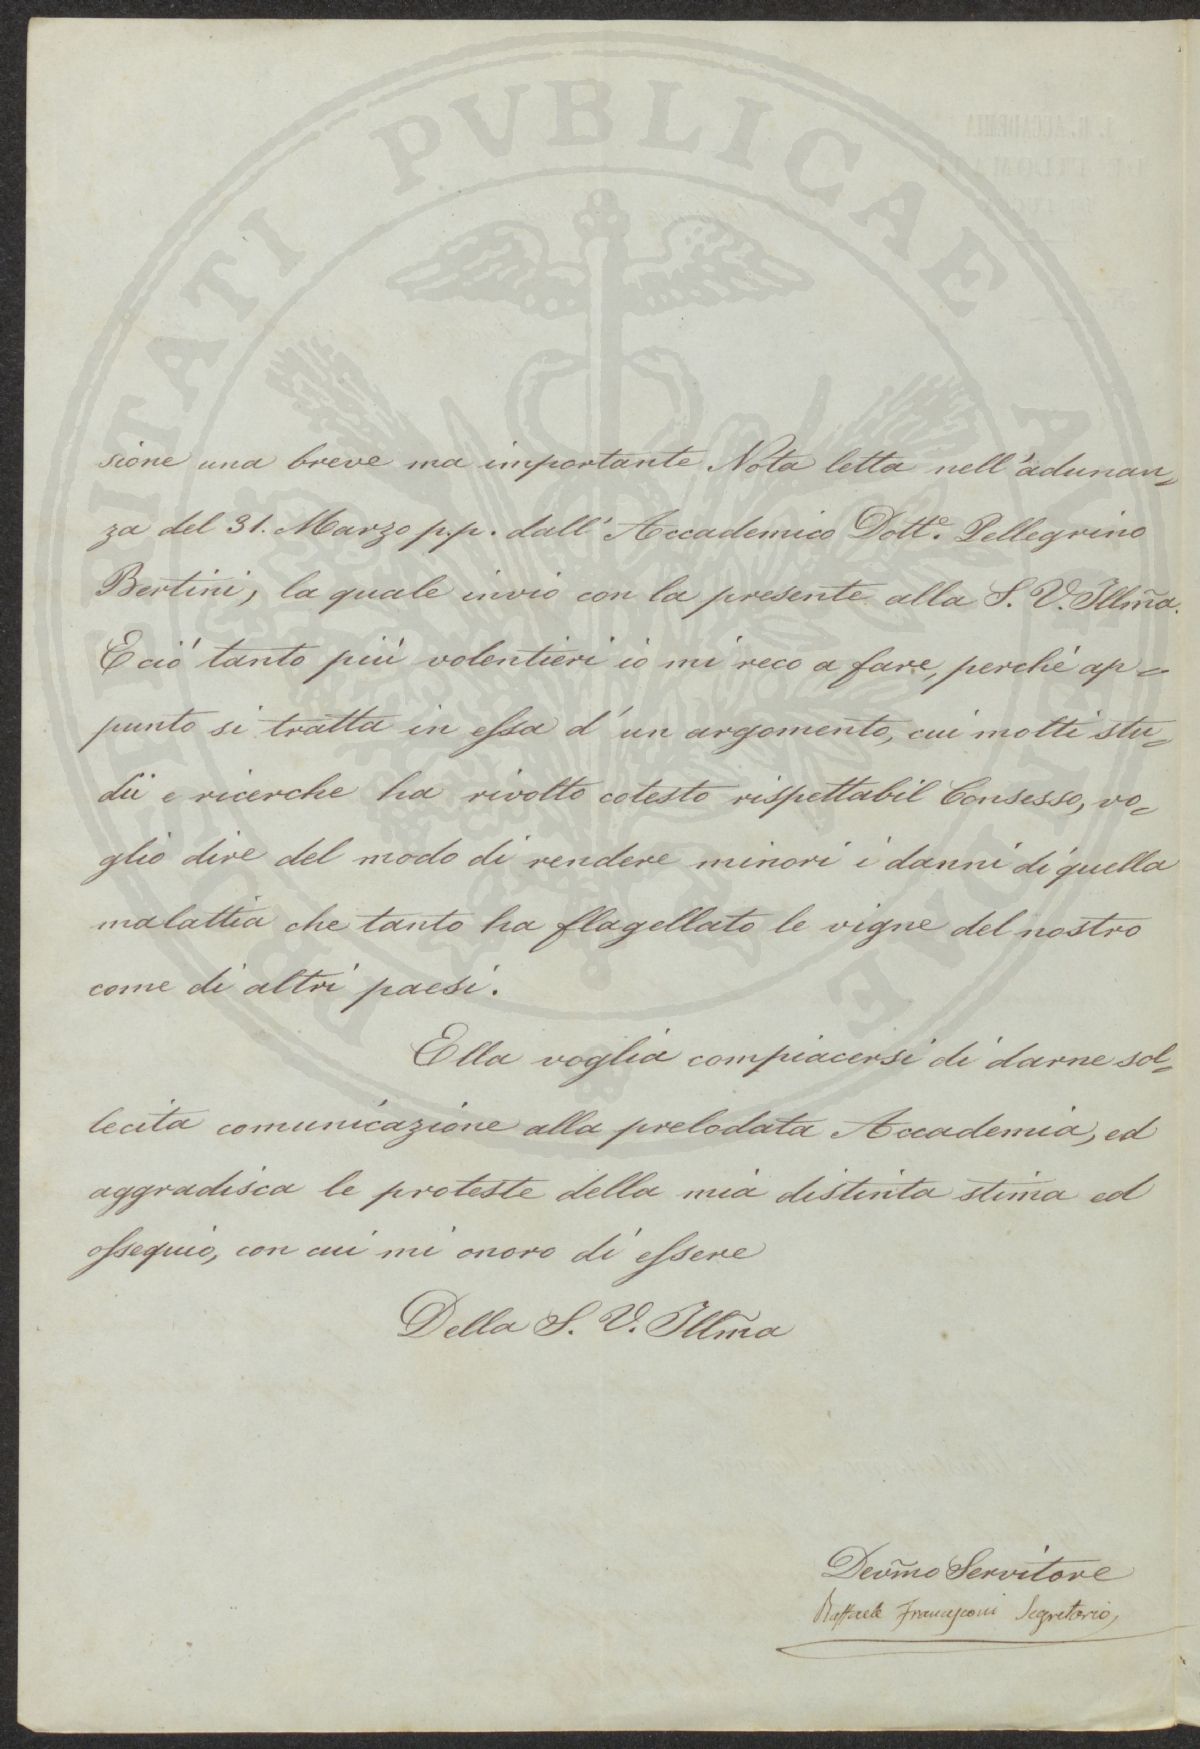 sione una breve ma importante Nota letta nell'adunan=
za del 31. Marzo p.p. dall'Accademico Dott.e Pellegrino
Bertini, la quale invio con la presente alla S. V. Illm̃a.
E ció tanto piú volentieri io mi reco a fare, perché ap=
punto si tratta in essa d'un argomento, cui molti stu=
dii e ricerche ha rivolto cotesto rispettabil Consesso, vo=
glio dire del modo di rendere minori i danni di quella
malattia che tanto ha flagellato le vigne del nostro
come di altri paesi.
Ella voglia compiacersi di darne sol=
lecita comunicazione alla prelodata Accademia, ed
aggradisca le proteste della mia distinta stima ed
ossequio, con cui mi onoro di essere
Della S. V. Illm̃a
Devm̃o Servitore
Raffaele Francesconi Segretario
PROSPERITATI PVBLICAE AVGENDAE